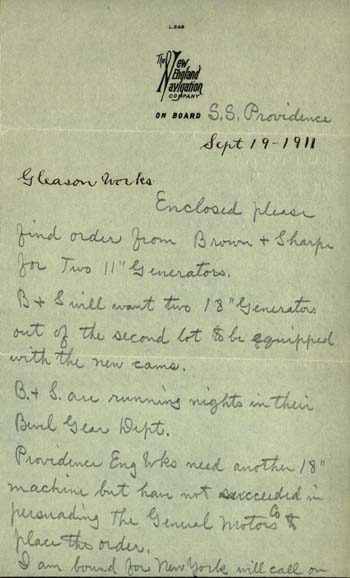 L 248
The New
England
Navigation
COMPANY
ON BOARD S.S. Providence
Sept 19-1911
Gleason Works
Enclosed please
find order from Brown + Sharpe
for Two 11" Generators.
B + S will want two 18" Generators
out of the second lot to be equipped
with the new cams.
B. + S. are running nights in their
Bevel Gear Dept.
Providence Eng Wks need another 18"
machine but have not succeeded in
persuading the General Motors Co to
place the order.
I am bound for New York will call on